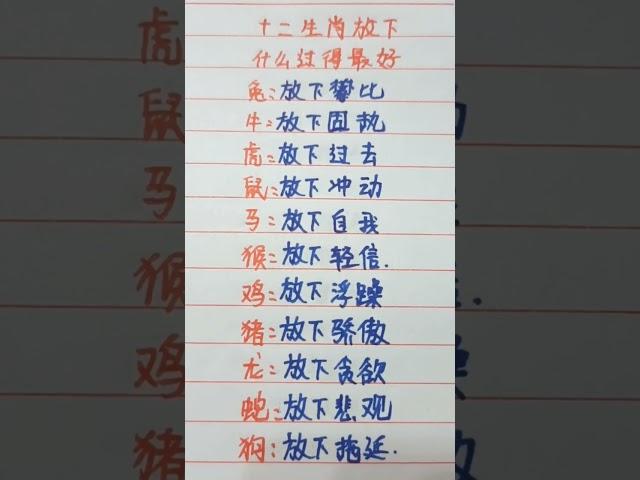 十二生肖放下
什么过得最好
兔:放下攀比
牛:放下固执
虎:放下过去
鼠:放下冲动
马:放下自我
猴:放下轻信.
鸡:放下浮躁
猪:放下骄傲
龙:放下贪欲
蛇:放下悲观
狗:放下拖延.